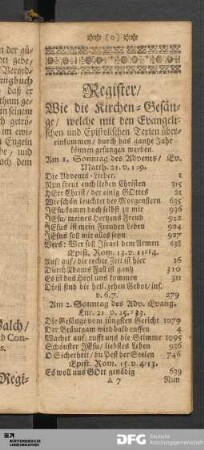 (o)
Register/
Wie die Kirchen-Gesän-
ge/ welche mit den Evangeli-
schen und Epistolischen Texten über-
einkommen/ durch das gantze Jahr
können gesungen werden.
Am 1. Sonntag des Advents/ Ev.
Matth. 21. v. 1.-9.
Die Advents-Lieder. 1
Nun freut euch lieben Christen 315
HErr Christ/ der einig GOttes
Wie schön leuchtet der Morgenstern 635
JEsu komm doch selbst zu mir 936
JEsu/ meines Hertzens Freud 922
JEsus ist mein Freuden Leben 924
JEsus soll mir alles seyn 927
Vers: Wer soll Israel dem Armen 638
Epist. Rom. 13. v. 11-14.
Auf! auf/ die rechte Zeit ist hier 16
Durch Adams Fall ist gantz 310
Es ist das Heyl uns kommen 311
Diß sind die heil. zehen Gebot/ inf.
v. 6.7. 279
Am 2. Sonntag des Adv. Evang.
Luc. 21. v. 25.-33.
Die Gesänge vom jüngsten Gericht 1079
Der Bräutgam wird bald ruffen 4
Wachet auf/ rufft uns die Stimme 1095
Schönster JEsu/ liebstes Leben 956
O Sicherheit/ du Pest der Seelen 746
Epist. Rom. 15. v. 4.-13.
Es woll uns GOtt genädig 629
A 7
Nun
Walch/
Regi-
DFG Deutsche
Forschungsgemeinschaft